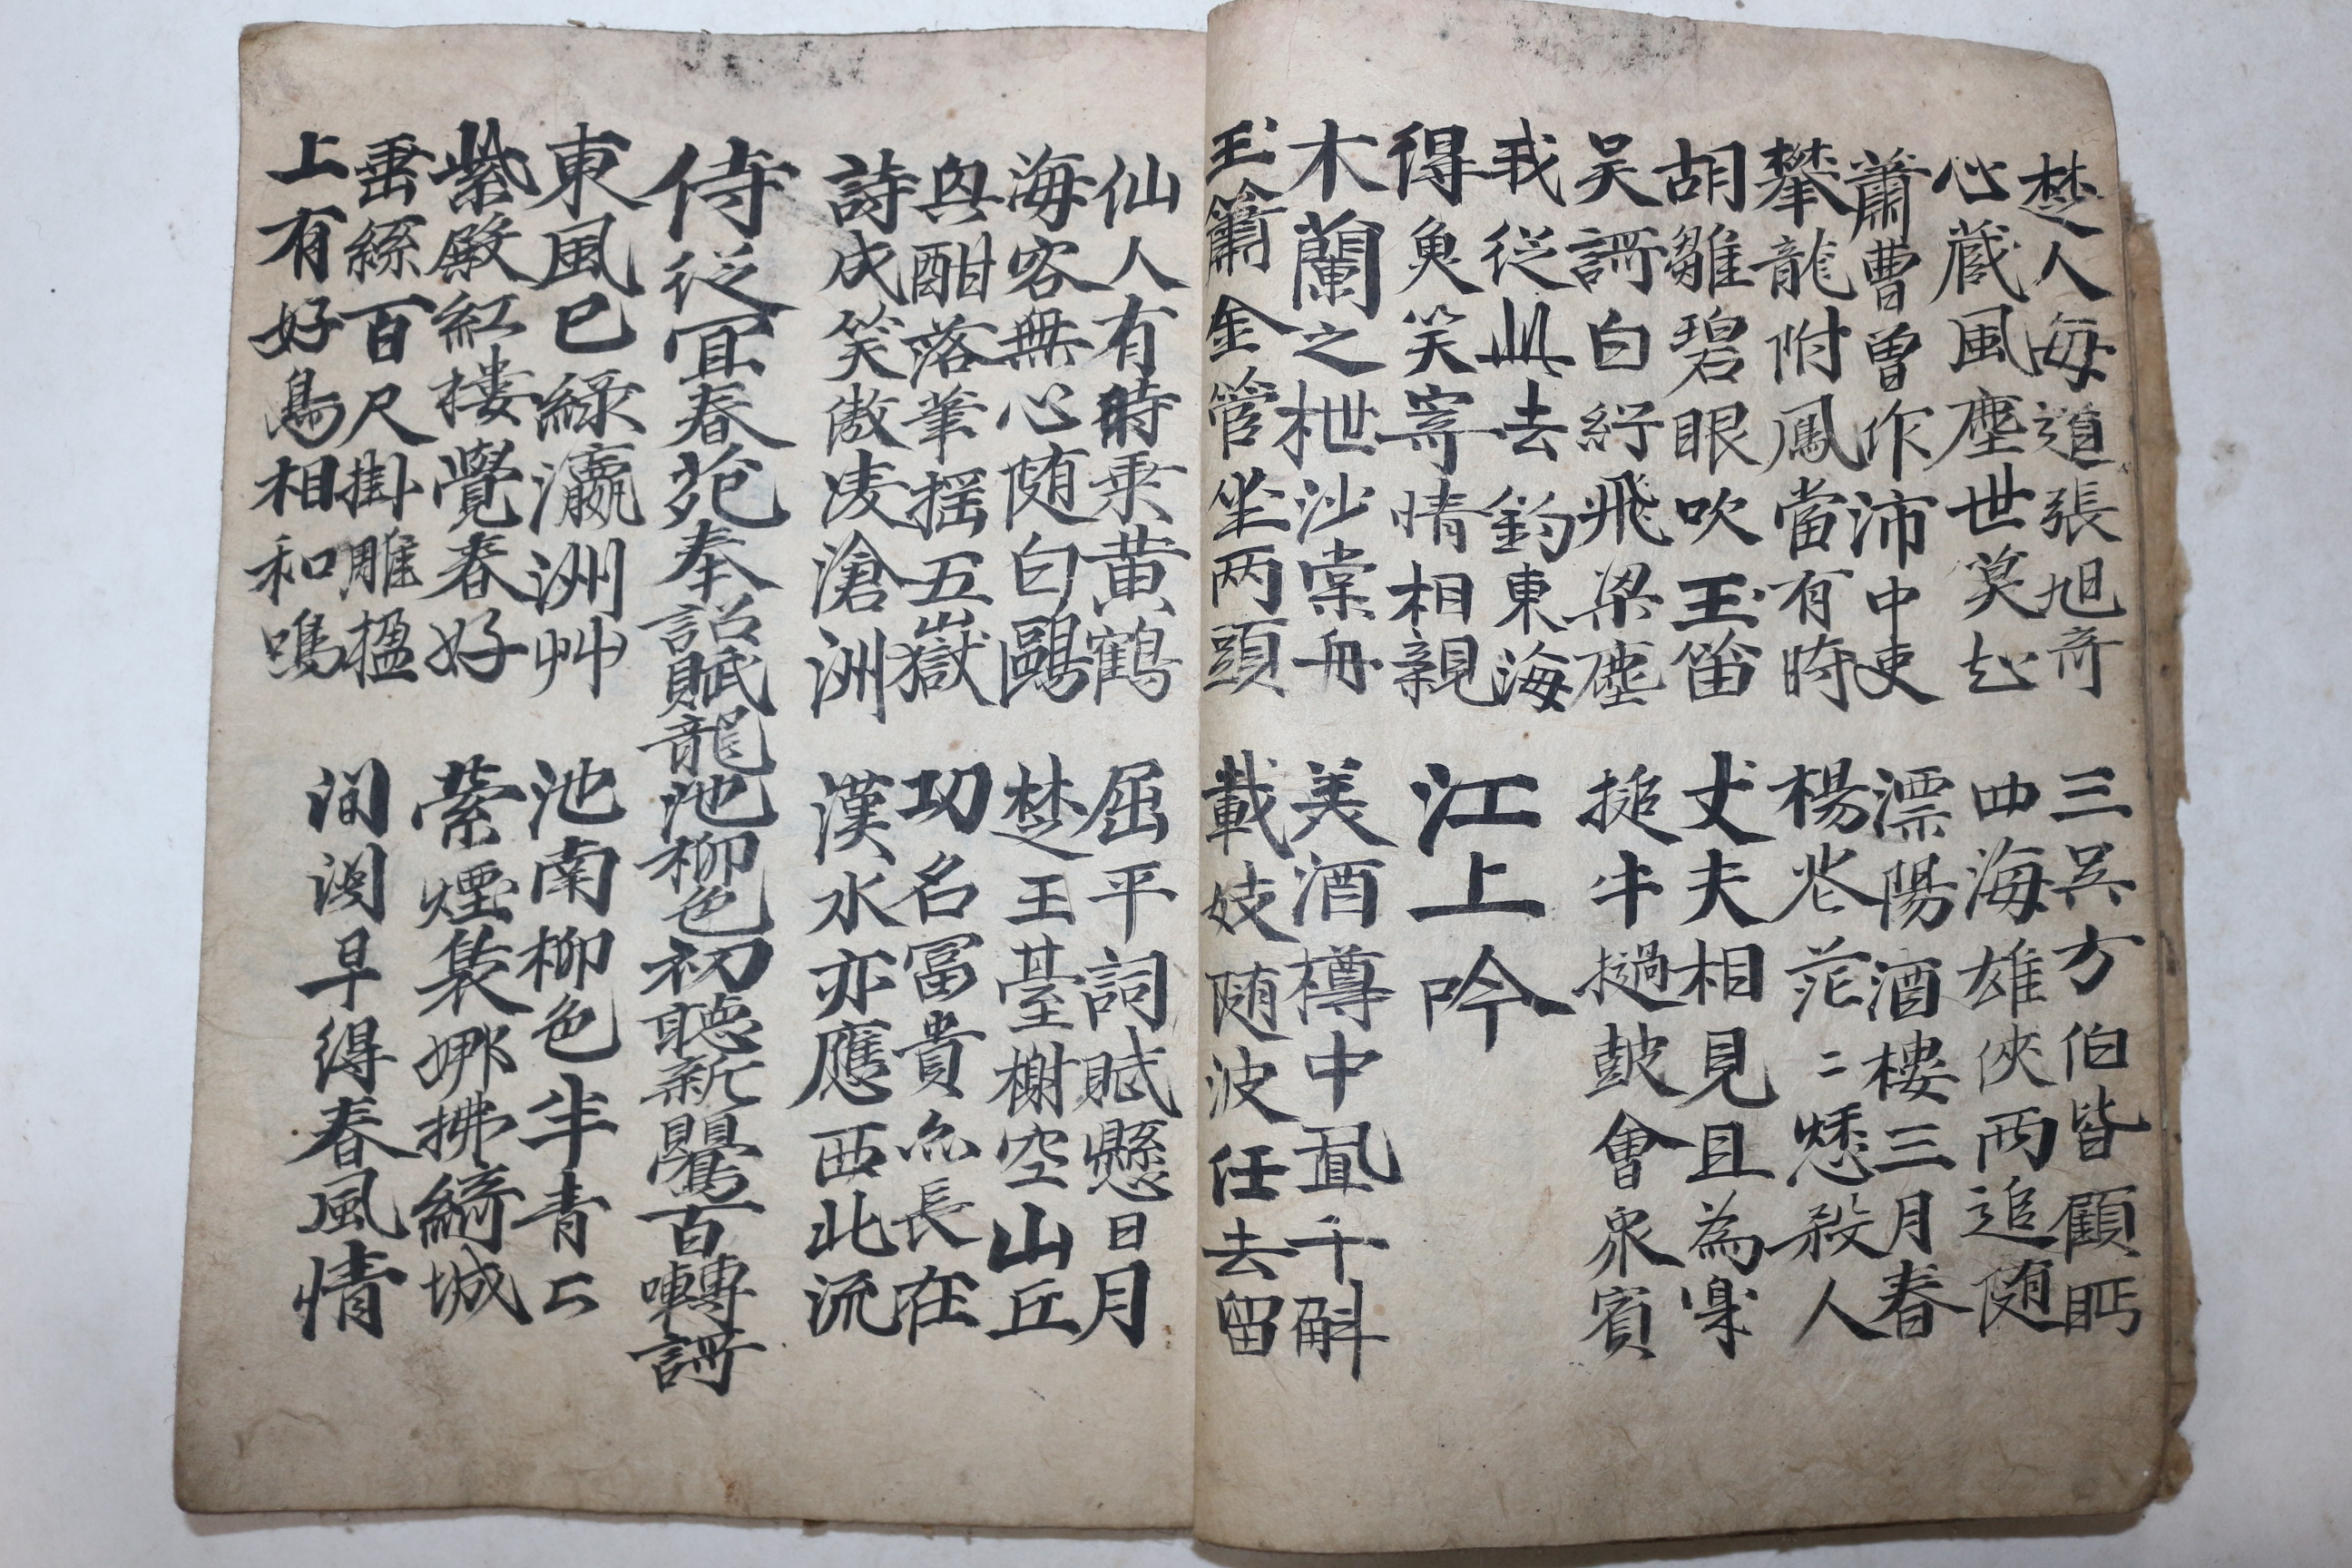 楚人每道張旭奇 三吳方伯皆顧眄
心蔵風塵世莫知 四海雄俠兩追随
蕭曹曾作沛中吏 漂陽酒樓三月春
攀龍附鳳當有時 楊花茫〻愁殺人
胡雛碧眼吹玉笛 丈夫相見且為樂
吳謌白紵飛梁塵 搥牛撾鼓會衆賓
我從此去釣東海
得魚笑寄情相親
江上吟
木蘭之枻沙棠舟 美酒樽中置千斛
玉簫金管坐两頭 載妓随波任去留
仙人有時乘黃鶴 屈平詞賦懸日月
海客無心随白鷗 楚王臺榭空山丘
興酣落筆揺五嶽 功名冨貴若長在
詩成笑傲凌滄洲 漢水亦應西北流
侍從宜春苑奉詔賦龍池柳色初聽新鸎百囀謌
東風已綠瀛洲艸 池南柳色半青〻
紫殿紅樓覺春好 縈煙裊娜拂綺城
垂絲百尺掛雕楹
上有好鳥相和鳴 間関早得春風情